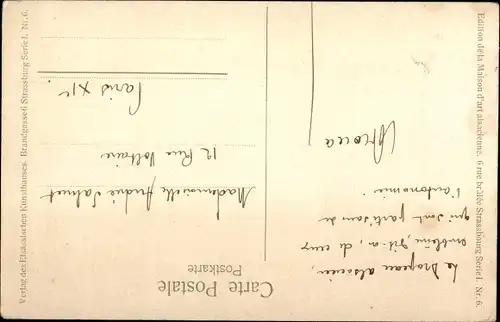 Carte Postale
Postkarte
Le Drapeau alsacien.
emblème, dit-on, de ceux
qui sont partisans de
l'autonomie.
Mademoiselle Andrée
12 Rue Voltaire
Paris XIe
Edition de la Maison d'art alsacienne. 6 rue brûlée Strassbourg Serie I. Nr. 6.
Verlag des Elsässischen Kunsthauses. Brandgasse 6 Strassburg Serie I. Nr. 6.